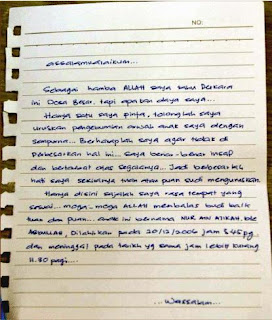 NO:
assalamualaikum...
Sebagai hamba ALLAH saya tahu Perkara
ini Dosa Besar, tapi apakan daya saya...
Hanya satu saya pinta, tolonglah saya
uruskan pengebumian arwah anak saya dengan
sempurna... Berharaplah saya agar tidak di
perbesarkan hal ini... saya benar-benar insaf
dan bertaubat atas segalanya... Jadi
hati saya sekiranya tuan atau puan sudi menguruskan
Hanya disini sajalah saya rasa tempat yang
sesuai... moga-moga ALLAH membalas budi baik
tuan dan puan... anak ini bernama NUR AIN ATIKAH bte
ABDULLAH Dilahirkan pada 20/12/2006 jam 8.45 pg
dan meninggal pada tarikh yg sama jam lebih kurang
11.30 pagi...
...Wassalam...